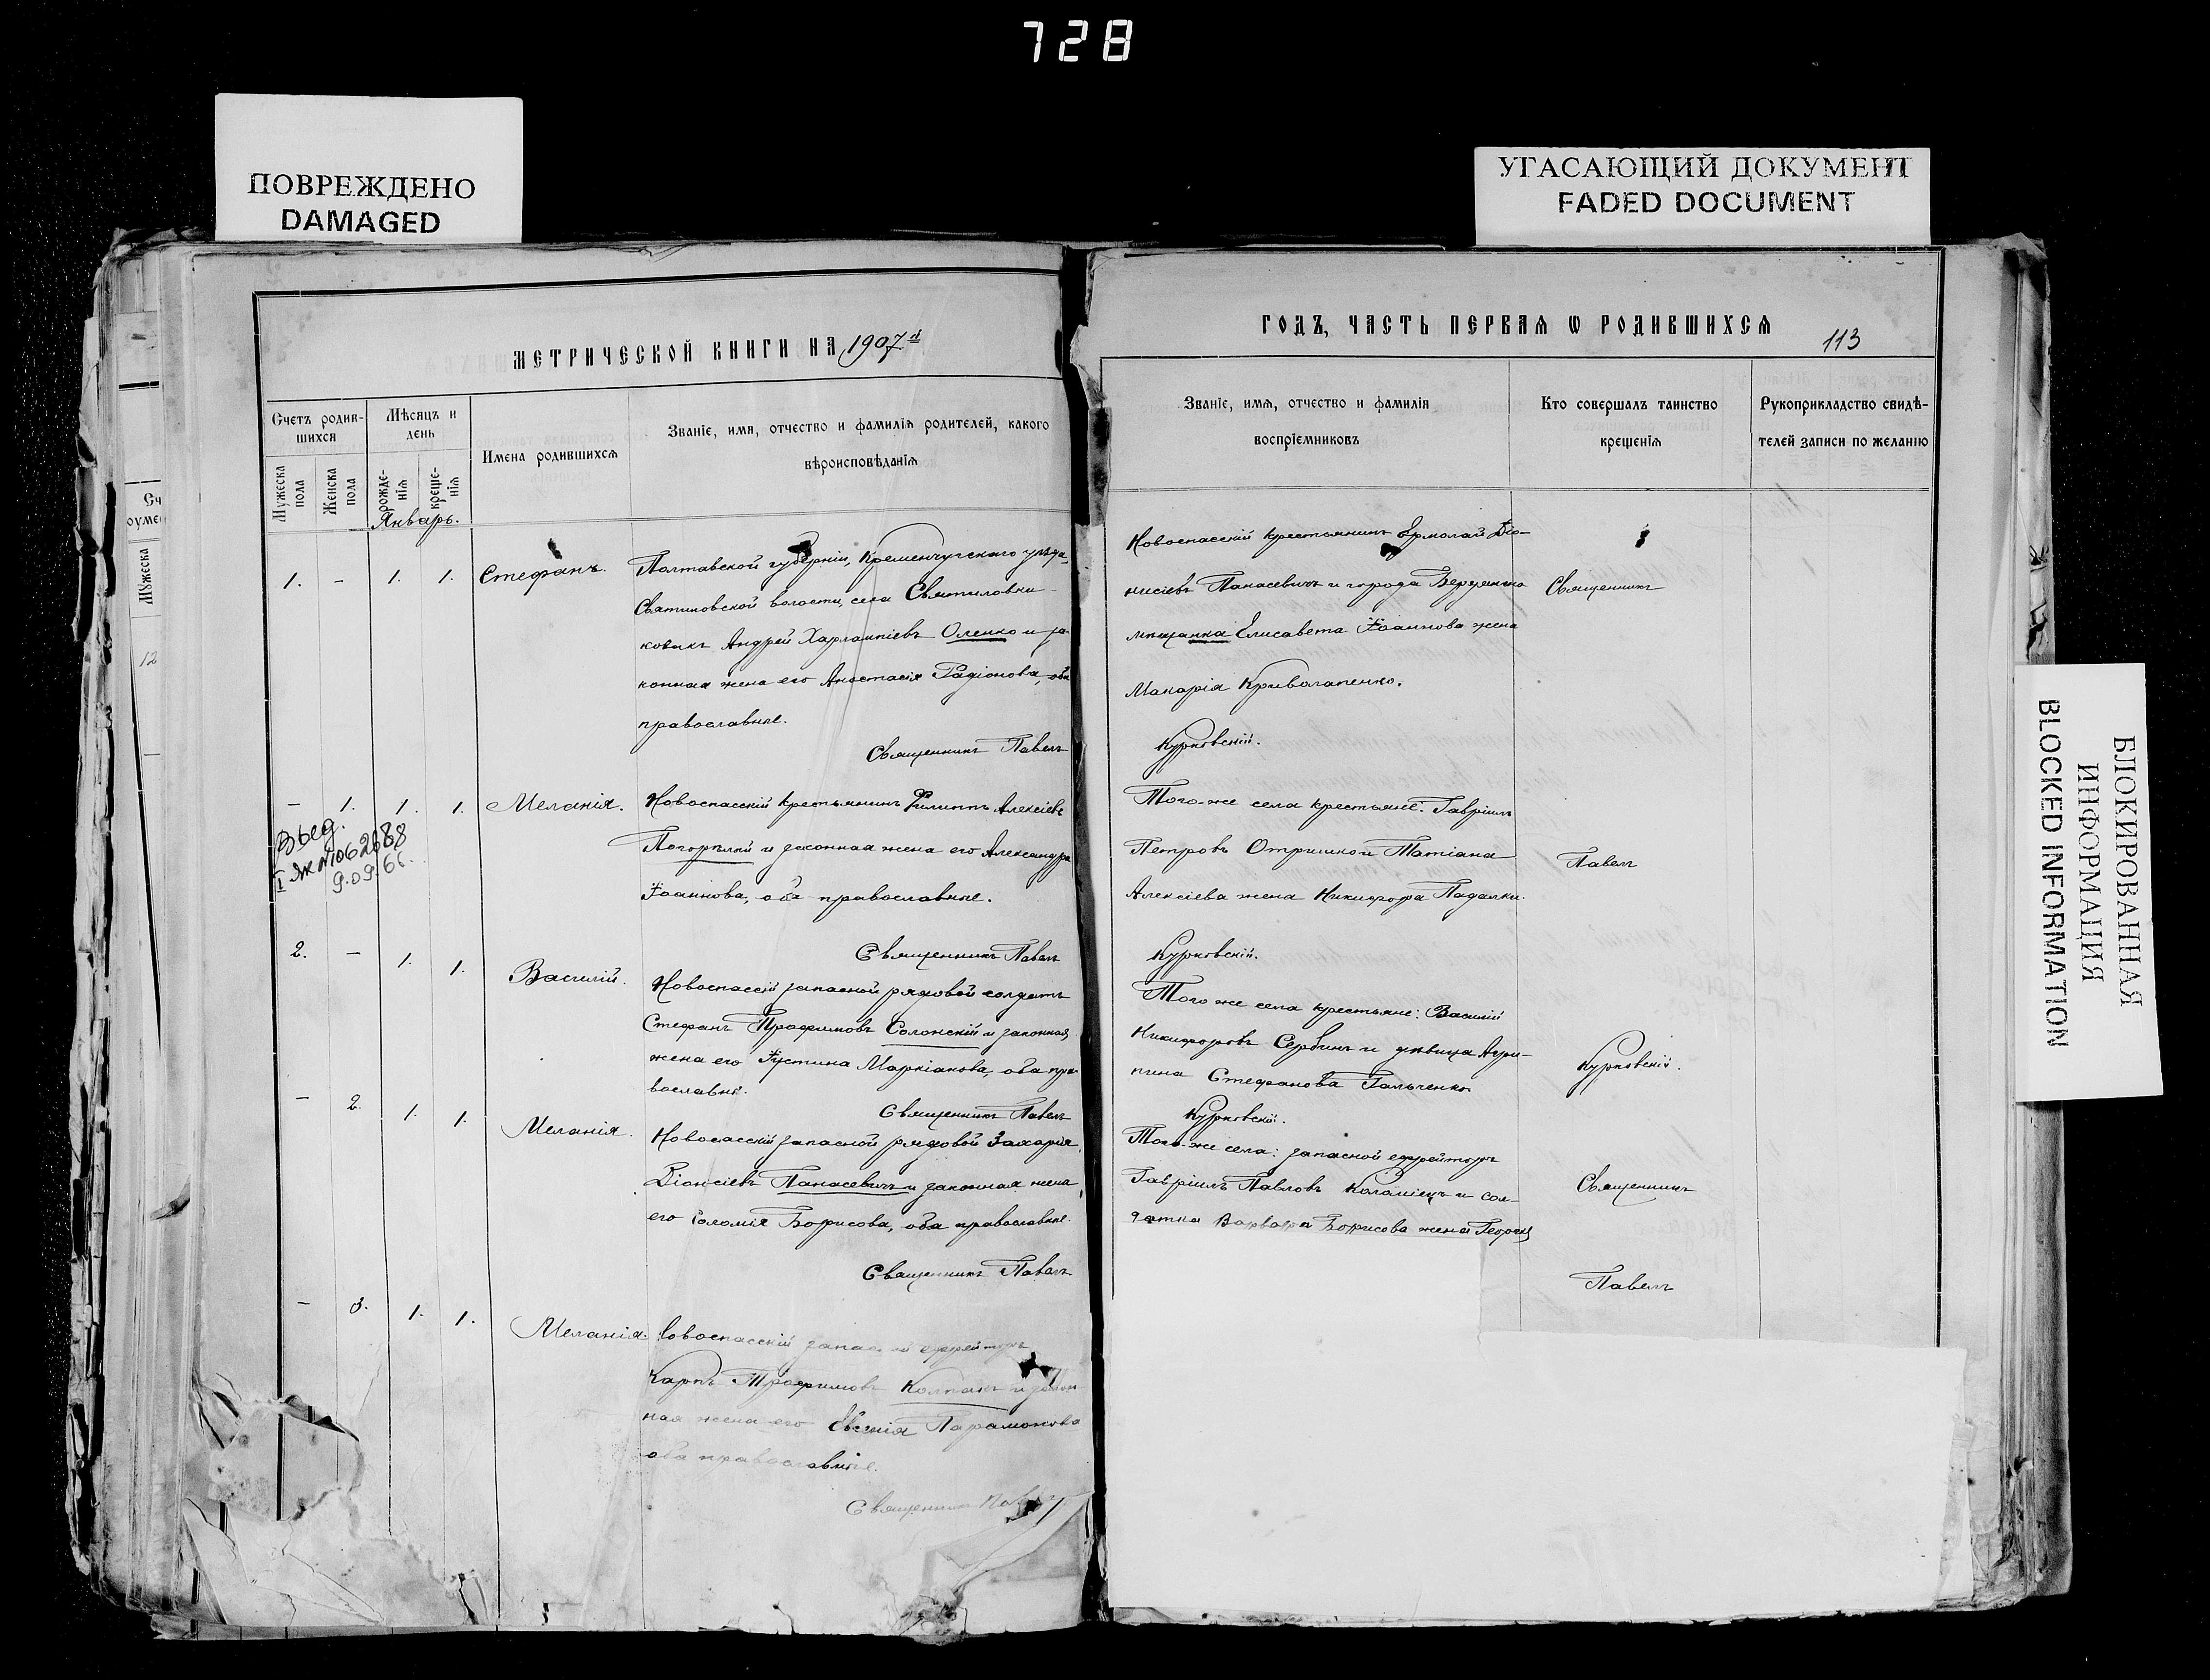 728
ПОВРЕЖДЕНО
DAMAGED
УГАСАЮЩИЙ ДОКУМЕНТ
FADED DOCUMENT
БЛОКИРОВАННАЯ
ИНФОРМАЦИЯ
BLOCKED INFORMATION
МЕТРИЧЕСКОЙ КНИГИ НА 1907й
Счетъ родив-
шихся
Мужеска
пола
Женска
пола
Мѣсяцъ и
день
рожде-
нія
креще-
нія
Имена родившихся
Званіе, имя, отчество и фамилія родителей, какого
вѣроисповѣданія
Январь.
1. - 1. 1. Стефанъ.
Полтавской губерніи, Кременчугскаго уѣзда,
села Святиловки
козакъ Андрей Харлампіевъ Оленко и за-
конная жена его Анастасія Радіонова, оба
православные.
Священникъ Павелъ
- 1. 1. 1. Меланія.
Выд.
I яж №1062688
9.09.66.
Новоспасскій крестьянинъ Филиппъ Алексіевъ
Погорѣлый и законная жена его Александра
Іоаннова, оба православные.
Священникъ Павелъ
2. - 1. 1. Василій.
Новоспасскій запасной рядовой солдатъ
Стефанъ Трофимовъ Солонскій и законная
жена его Іустина Маркіанова, оба пра-
вославны.
Священникъ Павелъ
- 2. 1. 1. Меланія.
Новосасскій запасной рядовой Захарія
Діонсіевъ Панасевичъ и законная жена
его Соломія Борисова, оба православные.
Священникъ Павелъ
- 3. 1. 1. Меланія.
Новоспасскій ефрейторъ
Карпъ Трофимовъ Колпакъ и закон-
ная жена его Евгенія Парамонова
оба православные.
Священникъ
ГОДЪ, ЧАСТЬ ПЕРВАЯ Ѡ РОДИВШИХСЯ
113
Званіе, имя, отчество и фамилія
воспріемниковъ
Кто совершалъ таинство
крещенія
Рукоприкладство свидѣ-
телей записи по желанію
Новоспасскій крестьянинъ Ермолай Діо-
нисіевъ Панасевичъ и города Бердянска
мѣщанка Елисавета Іоаннова жена
Макарія Криволапенко.
Курковскій.
Того-же села крестьяне: Гавріилъ
Петровъ Отришко и Татіана
Алексіева жена Никифора Падалки.
Курковскій.
Того же села крестьяне: Василій
Никифоровъ Сербинъ и дѣвица Агри-
пина Стефанова Гальченко
Курковскій.
Того-же села: запасной ефрейторъ
Гавріилъ Павловъ Коломіецъ и сол-
датка Варвара Борисова жена Георгія
Священникъ
Павелъ
Курковскій.
Священникъ
Павелъ